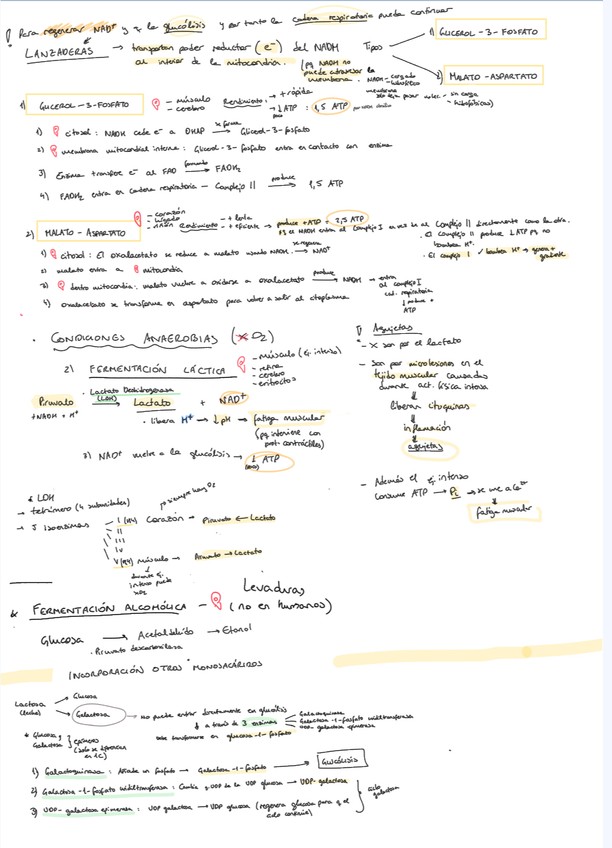 Para regenerar NAD+ y q la glucólisis y por tanto la cadena respiratoria pueda continuar
LANZADERAS → transportan poder reductor (e-) del NADH
al interior de la mitocondria.
(pq NADH no puede atravesar la membrana.
Tipos
1) GLICEROL-3-FOSFATO
2) MALATO-ASPARTATO
1) GLICEROL-3-FOSFATO
- músculo
- cerebro
Rendimiento:
→ + rápida
→ ↓ATP : 1,5 ATP
1) citosol: NADH cede e- a DHAP se forma → Glicerol-3-fosfato
2) membrana mitocondrial interna: Glicerol-3-fosfato entra en contacto con enzima
3) Enzima transfiere e- al FAD formando → FADH2
4) FADH2 entra en cadena respiratoria - Complejo II produce → 1,5 ATP
2) MALATO-ASPARTATO
- corazón
- hígado
- riñón
Rendimiento
→ + lenta
→ + eficiente → produce +ATP = 2,5 ATP
pq el NADH entra al Complejo I en vez de al Complejo II directamente como la otra.
· El complejo II produce ↓ATP pq no bombea H+.
· El complejo I ✓ bombea H+ → genera + gradiente
1) citosol: El oxalacetato se reduce a malato usando NADH se regenera → NAD+
2) malato entra a mitocondria
3) dentro mitocondria: malato vuelve a oxidarse a oxalacetato produce → NADH → entra al complejo I cad. respiratoria
↓ produce + ATP
4) oxalacetato se transforma en aspartato para volver a salir al citoplasma
· CONDICIONES ANAEROBIAS (× O2)
2) FERMENTACIÓN LÁCTICA
- músculo (ej. intenso)
- retina
- cerebro
- eritrocitos
· Lactato Deshidrogenasa
(LDH)
Piruvato → Lactato + NAD+
+ NADH + H+
· libera H+ → ↓ pH → fatiga muscular
(pq interviene con prot. contráctiles)
3) NAD+ vuelve a la glucólisis → ↓ ATP
Agujetas
- × son por el lactato
- Son por microlesiones en el
tejido muscular causadas
durante act. física intensa
↓
liberan citoquinas
↓
inflamación
↓
agujetas
- Además el ej. intenso
consume ATP → Pi → se une a Ca2+
↓
fatiga muscular
* LDH
→ tetrámero (4 subunidades)
→ 5 isoenzimas
siempre hay O2
I (H4) Corazón → Piruvato ← Lactato
II
III
IV
V (M4) músculo → Piruvato → Lactato
↓
durante ej. intenso puede ×O2
* FERMENTACIÓN ALCOHÓLICA - Levaduras
(no en humanos)
Glucosa → Acetaldehído → Etanol
· Piruvato descarboxilasa
INCORPORACIÓN OTROS MONOSACÁRIDOS
Lactosa
(leche)
→ Glucosa
→ Galactosa → no puede entrar directamente en glucólisis
↓ a través de 3 enzimas
- Galactoquinasa
- Galactosa-1-fosfato uridiltransferasa
- UDP-galactosa epimerasa
debe transformarse en glucosa-1-fosfato
* Glucosa y
Galactosa
epímeros
(solo se diferencian en 1 C)
1) Galactoquinasa: Añade un fosfato → Galactosa-1-fosfato → GLUCÓLISIS
2) Galactosa-1-fosfato uridiltransferasa: Cambia UDP de la UDP glucosa → UDP-galactosa
3) UDP-galactosa epimerasa: UDP galactosa → UDP glucosa (regenera glucosa para q el
ciclo continúe)
ciclo
galactosa